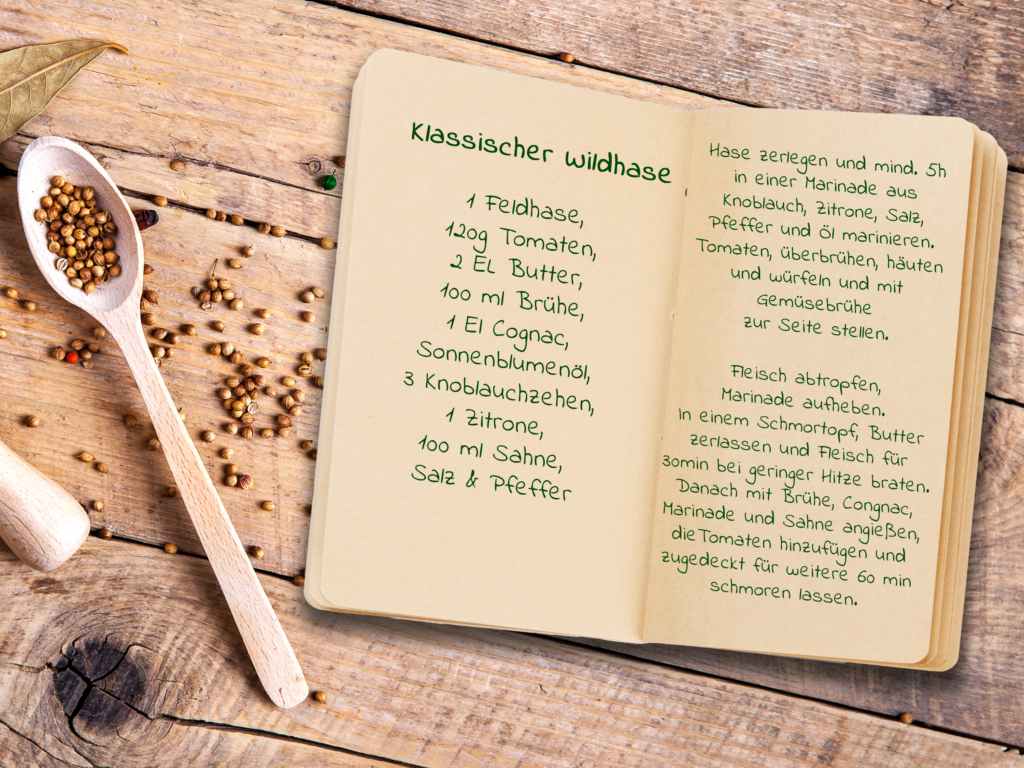 Klassischer Wildhase
1 Feldhase,
120g Tomaten,
2 EL Butter,
100 ml Brühe,
1 El Cognac,
Sonnenblumenöl,
3 Knoblauchzehen,
1 Zitrone,
100 ml Sahne,
Salz & Pfeffer
Hase zerlegen und mind. 5h
in einer Marinade aus
Knoblauch, Zitrone, Salz,
Pfeffer und Öl marinieren.
Tomaten, überbrühen, häuten
und würfeln und mit
Gemüsebrühe
zur Seite stellen.
Fleisch abtropfen,
Marinade aufheben.
In einem Schmortopf, Butter
zerlassen und Fleisch für
30min bei geringer Hitze braten.
Danach mit Brühe, Congnac,
Marinade und Sahne angießen,
die Tomaten hinzufügen und
zugedeckt für weitere 60 min
schmoren lassen.